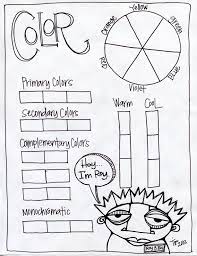 COLOR
Yellow
Orange
Green
Red
Blue
Violet
Primary Colors
Secondary Colors
Complementary Colors
Warm Cool
Hey...
I'm Ray.
Monochromatic